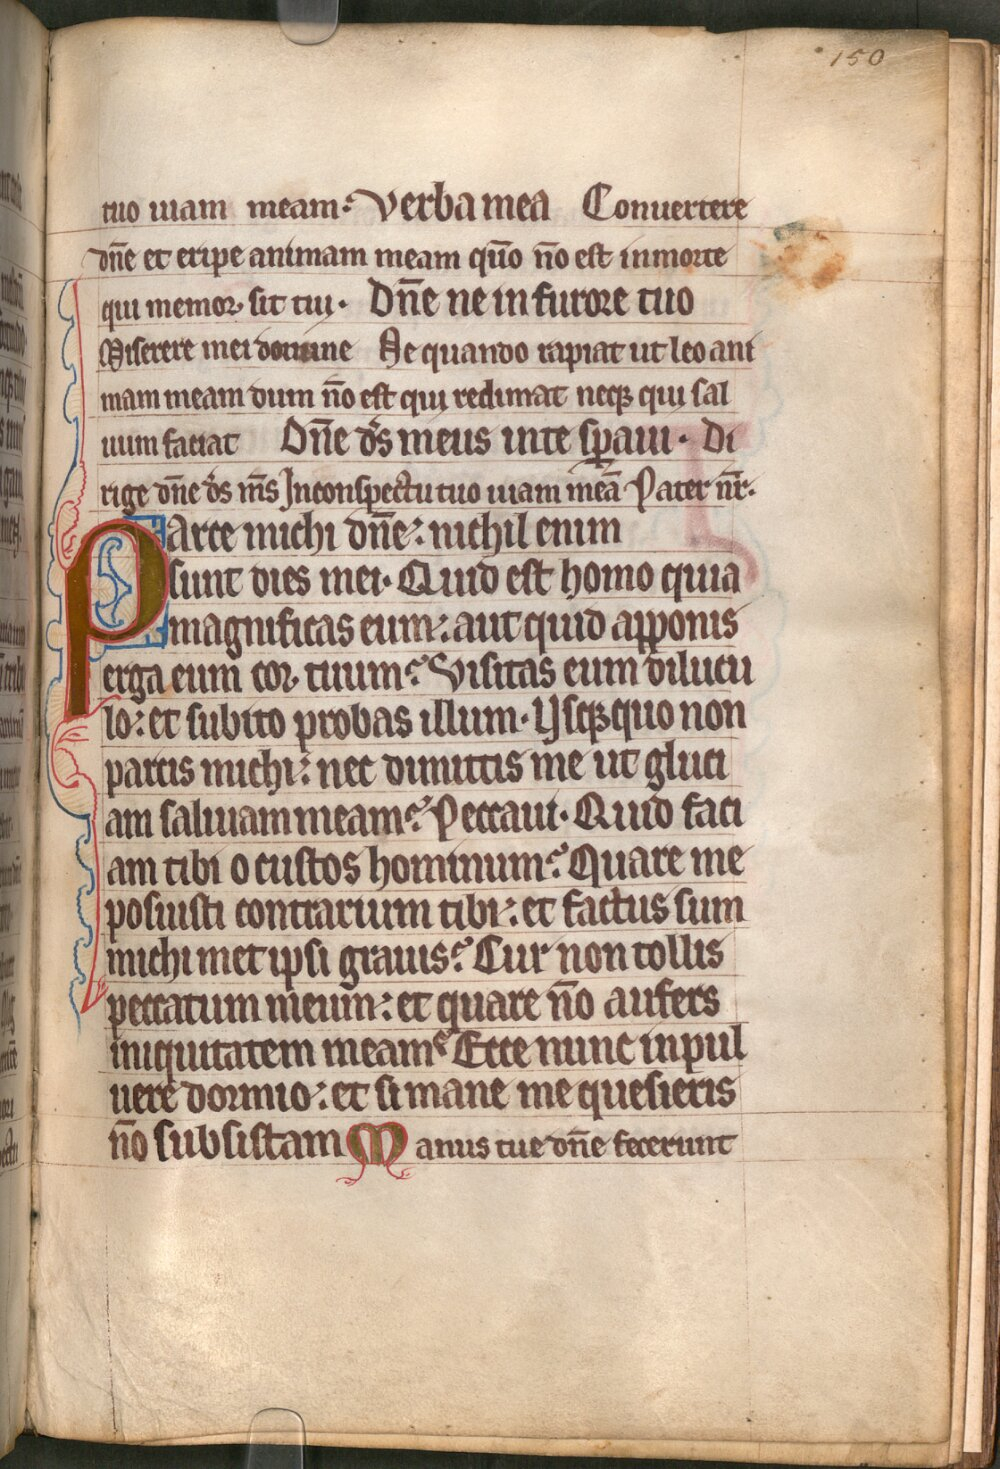 150
tuo uiam meam. Verba mea Conuertere
dn̄e et eripe animam meam qm̄o n̄o est in morte
qui memor sit tui. Dn̄e ne in furore tuo
Miserere mei domine Ne quando rapiat ut leo ani
mam meam dum n̄o est qui redimat neqꝫ qui sal
uum faciat Dn̄e ds̄ meus in te sꝑaui. Di
rige dn̄e ds̄ ms̄ In conspectu tuo uiam meā Pater nr̄.
Parce michi dn̄e: nichil enim
sunt dies mei. Quid est homo quia
magnificas eum: aut quid apponis
erga eum cor tuum? Visitas eum dilucu
lo: et subito probas illum. Vsqꝫ quo non
parcis michi: nec dimittis me ut gluci
am saliuam meam? Peccaui. Quid faci
am tibi o custos hominum? Quare me
posuisti contrarium tibi: et factus sum
michi met ipsi grauis? Cur non tollis
peccatum meum: et quare n̄o aufers
iniquitatem meam? Ecce nunc in pul
uere dormio: et si mane me quesieris
n̄o subsistam Manus tue dn̄e fecerunt